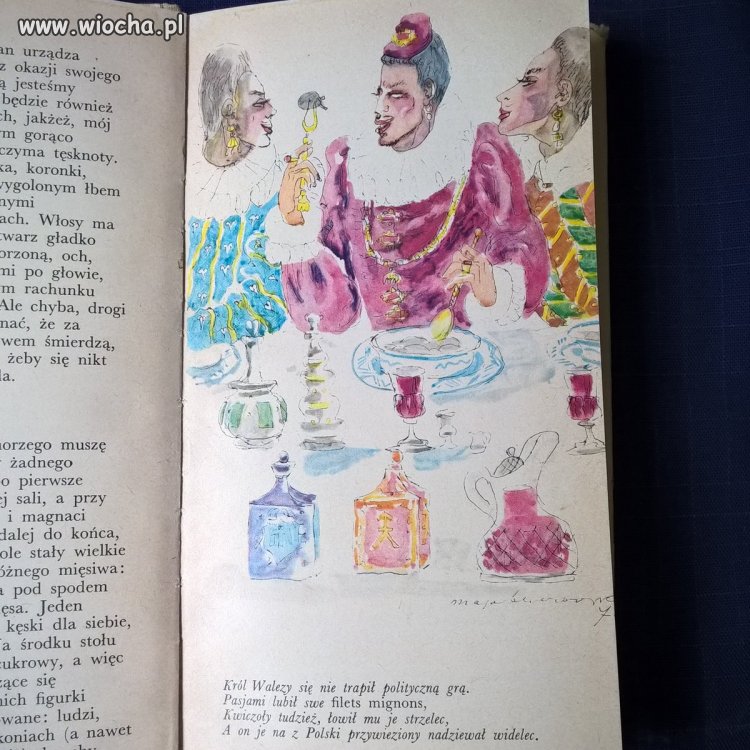 www.wiocha.pl
an urządza
z okazji swojego
ą jesteśmy
będzie również
ch, jakżeż, mój
ym gorąco
czyma tęsknoty.
ka, koronki,
wygolonym łbem
nymi
ach. Włosy ma
twarz gładko
orzoną, och,
mi po głowie,
ym rachunku
Ale chyba, drogi
nać, że za
wem śmierdzą,
żeby się nikt
la.
horzego muszę
żadnego
o pierwsze
ej sali, a przy
i magnaci
dalej do końca,
ole stały wielkie
óżnego mięsiwa:
a pod spodem
ęsa. Jeden
kęski dla siebie,
a środku stołu
cukrowy, a więc
zące się
nich figurki
owane: ludzi,
koniach (a nawet
Król Walezy się nie trapił polityczną grą.
Pasjami lubił swe filets mignons,
Kwiczoły tudzież, łowił mu je strzelec,
A on je na z Polski przywieziony nadziewał widelec.